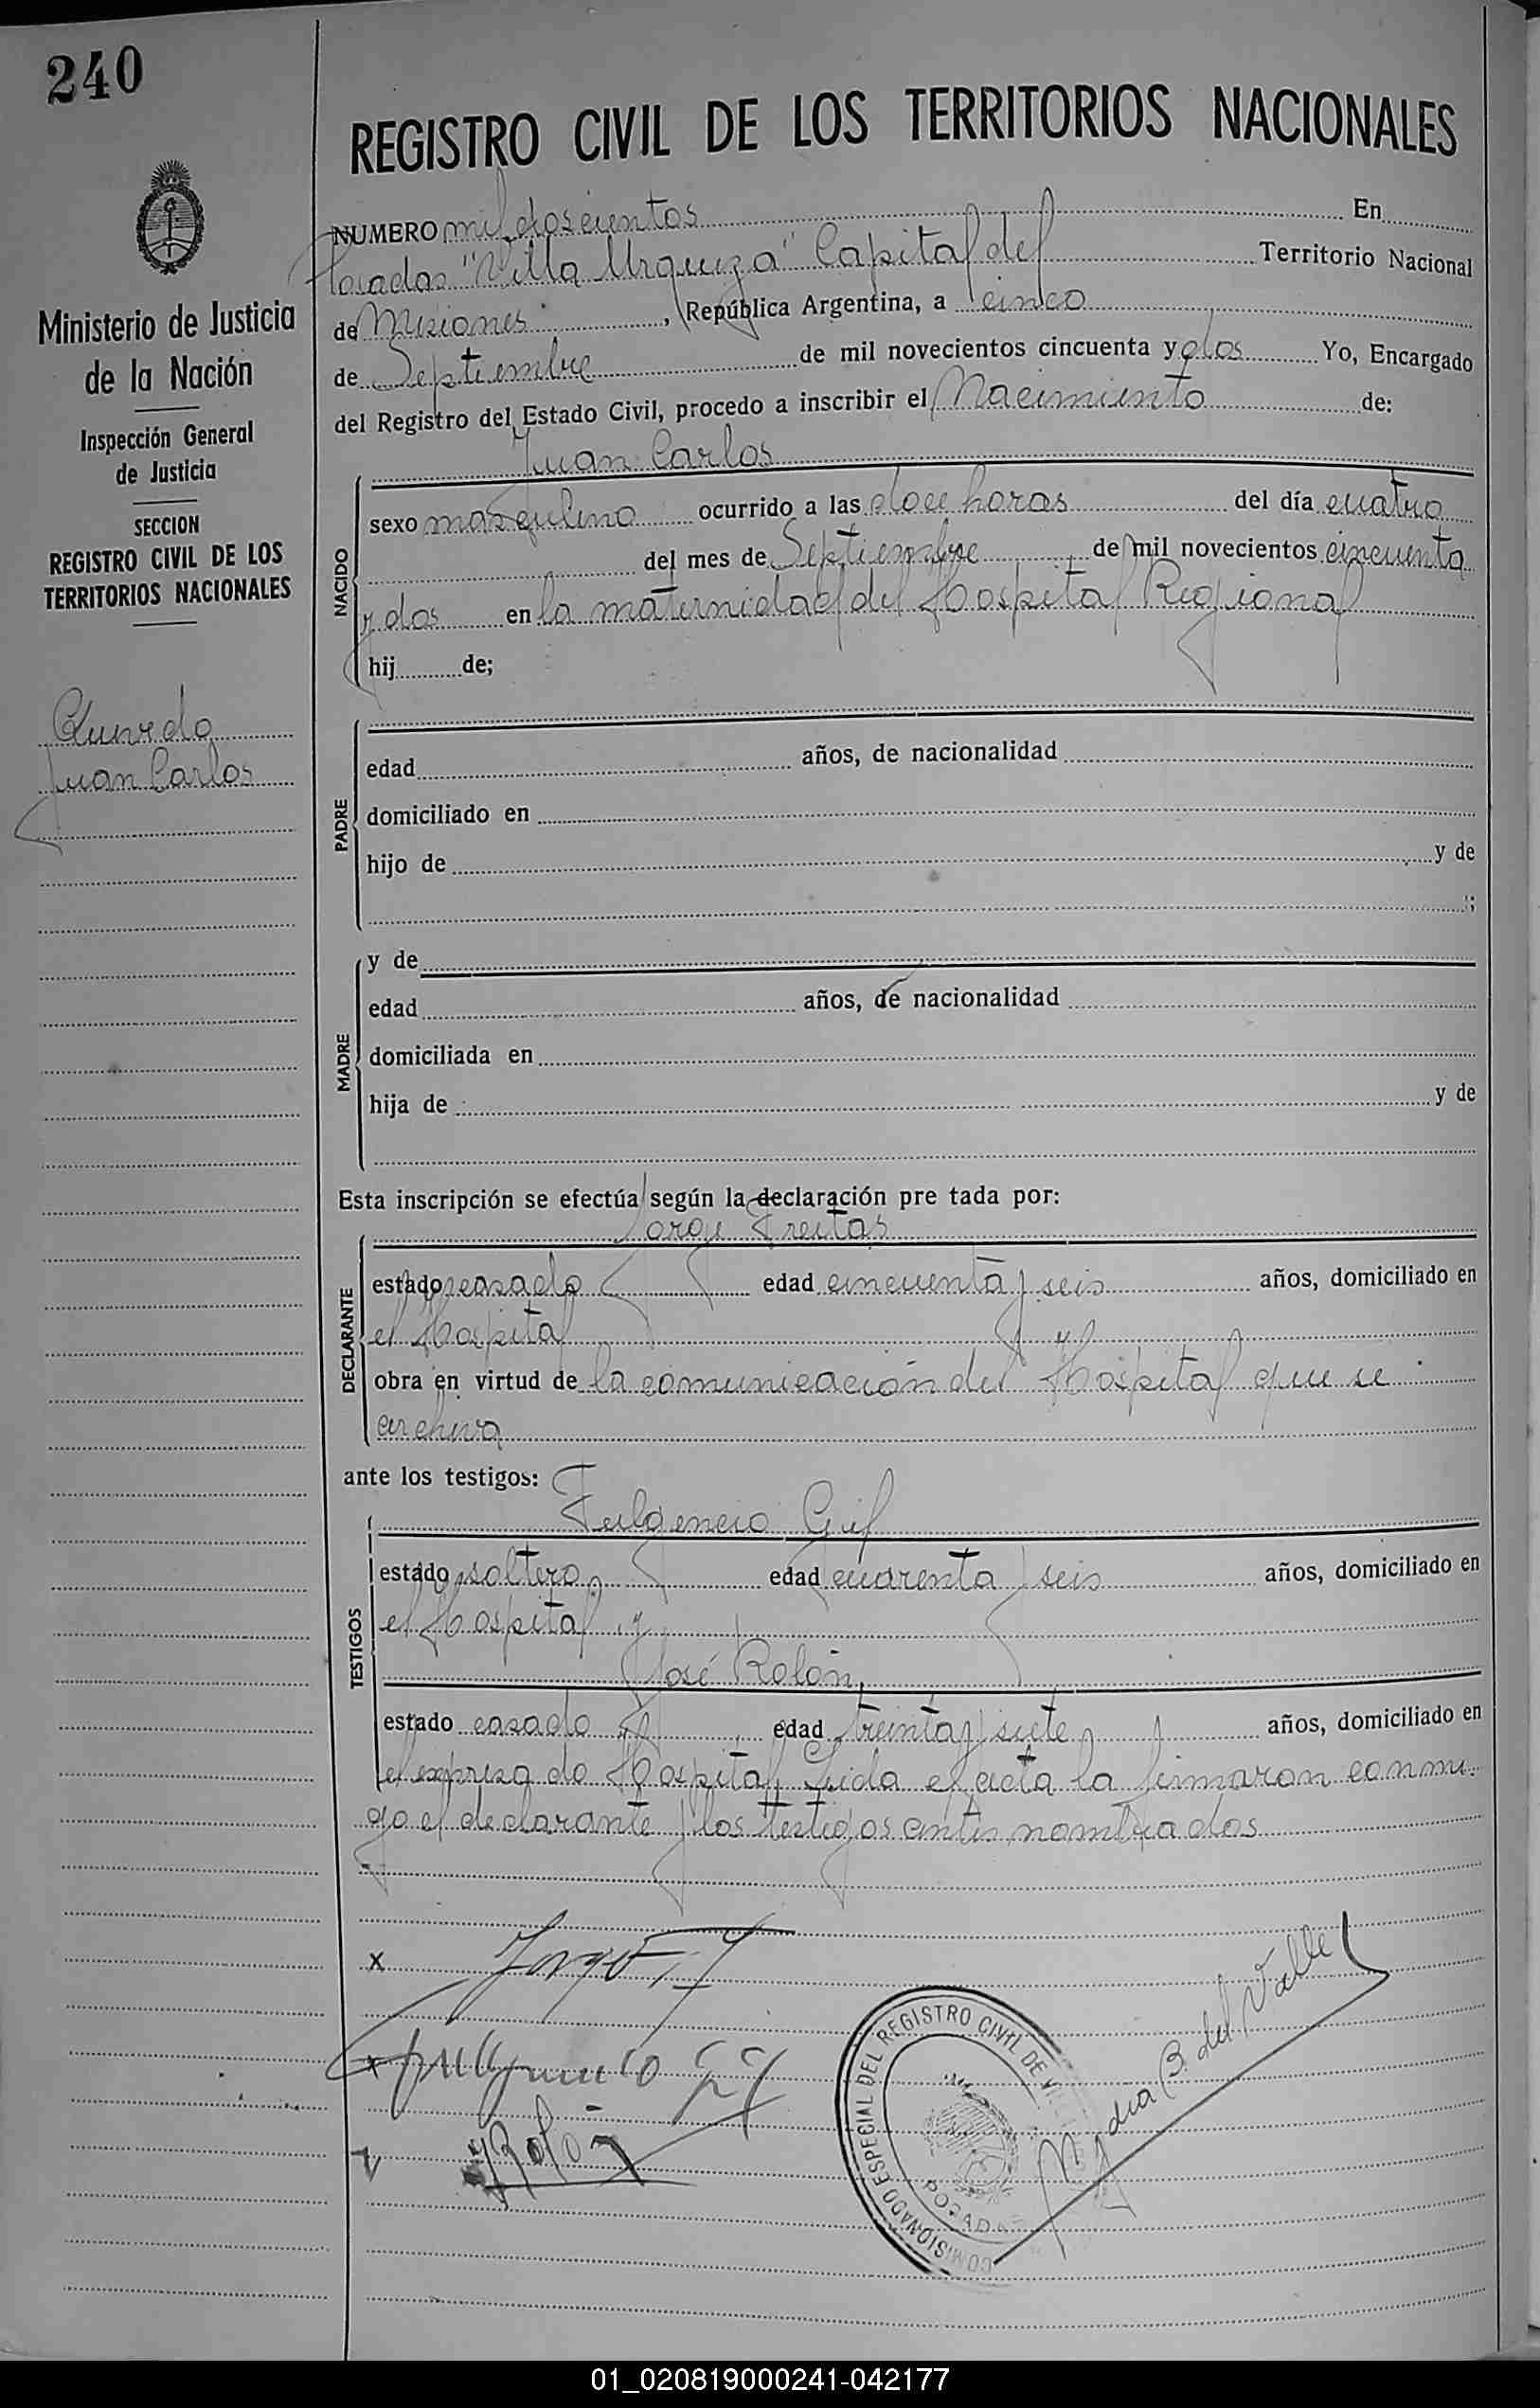 240
REGISTRO CIVIL DE LOS TERRITORIOS NACIONALES
Ministerio de Justicia
de la Nación
Inspección General
de Justicia
SECCION
REGISTRO CIVIL DE LOS
TERRITORIOS NACIONALES
Quevedo
Juan Carlos
NUMERO mil doscientos En
Posadas "Villa Urquiza" Capital del Territorio Nacional
de Misiones, República Argentina, a cinco
de Septiembre de mil novecientos cincuenta y dos Yo, Encargado
del Registro del Estado Civil, procedo a inscribir el Nacimiento de:
NACIDO
Juan Carlos
sexo masculino ocurrido a las doce horas del día cuatro
del mes de Septiembre de mil novecientos cincuenta
y dos en la maternidad del Hospital Regional
hij de;
PADRE
edad años, de nacionalidad
domiciliado en
hijo de y de
;
MADRE
y de
edad años, de nacionalidad
domiciliada en
hija de y de
Esta inscripción se efectúa según la declaración pre tada por:
DECLARANTE
Jorge Freitas
estado casado edad cincuenta y seis años, domiciliado en
el Hospital y
obra en virtud de la comunicación del Hospital que se
archiva
ante los testigos:
TESTIGOS
Fulgencio Gil
estado soltero edad cuarenta y seis años, domiciliado en
el Hospital y
José Rolón,
estado casado edad treinta y siete años, domiciliado en
el expresado Hospital, Leida el acta la firmaron conmi-
go el declarante y los testigos antes nombrados
x Jorge F
x fullgencio Gil
v J Rolón
COMISIONADO ESPECIAL DEL REGISTRO CIVIL DE
POSADAS
B. del Valle
01_020819000241-042177